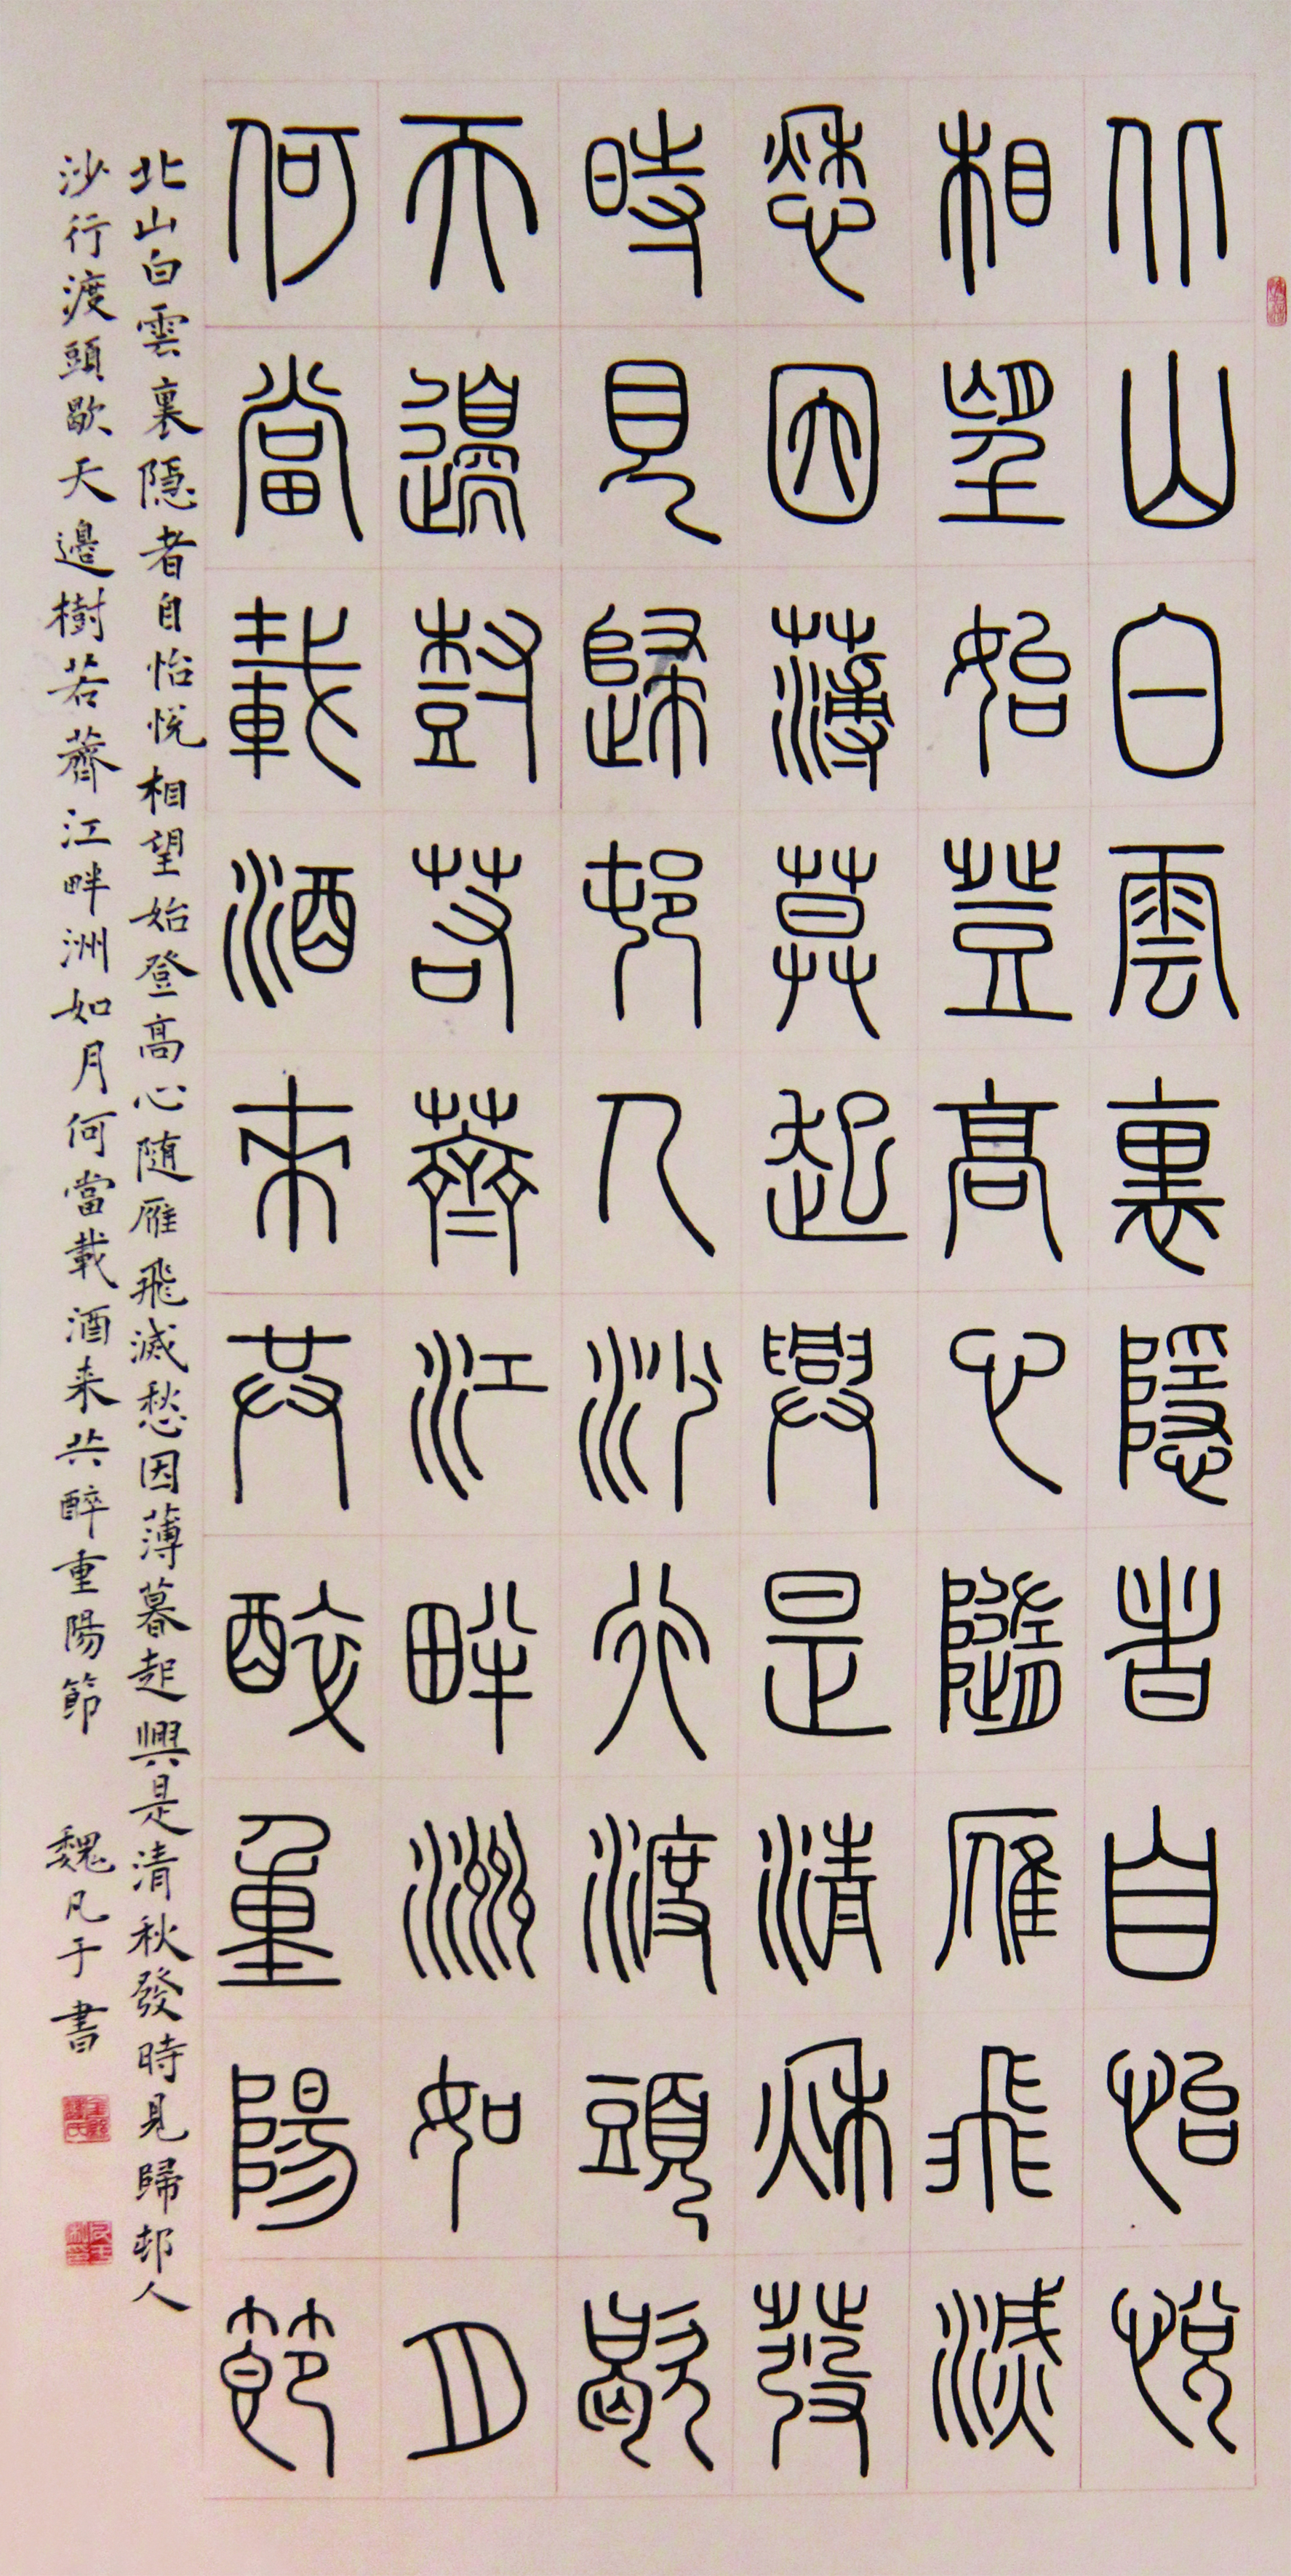 北山白雲裏隱者自怡悅
相望始登高心隨雁飛滅
愁因薄莫起興是清秋發
時見歸邨人沙行渡頭歇
天邊樹若薺江畔洲如月
何當載酒來共醉重陽節
北山白雲裏隱者自怡悅相望始登高心随雁飛滅愁因薄暮起興是清秋發時見歸邨人
沙行渡頭歇天邊樹若薺江畔洲如月何當載酒来共醉重陽節 魏凡于書